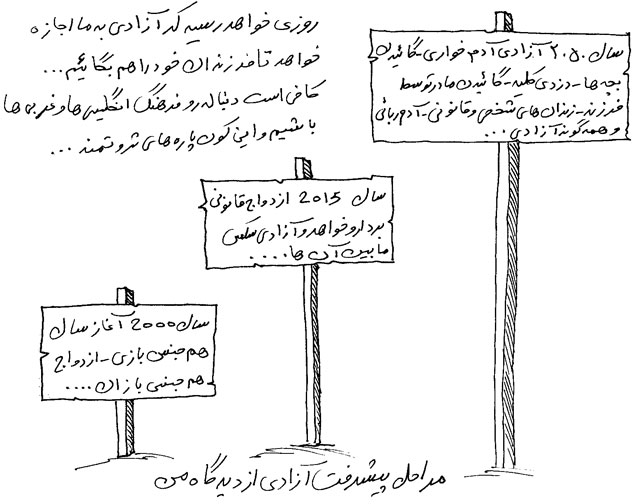 روزی خواهد رسید که آزادی به ما اجازه
خواهد تا فرزندان خود را هم بگائیم...
کافی است دنباله رو فرهنگ انگلیسی ها و غربی ها
باشیم و این کون پاره های ثروتمند...
سال ۲۰۵۰ آزادی آدم خواری-گائیدن
بچه ها-دزدی کلیه-گائیدن مادر توسط
فرزند-زندان های شخصی و قانونی-آدم ربائی
و همه گونه آزادی...
سال 2015 ازدواج قانونی
برادر و خواهر و آزادی سکس
مابین آن ها....
سال 2000 آغاز سال
هم جنس بازی-ازدواج
هم جنس بازان....
مراحل پیشرفت آزادی از دیدگاه من